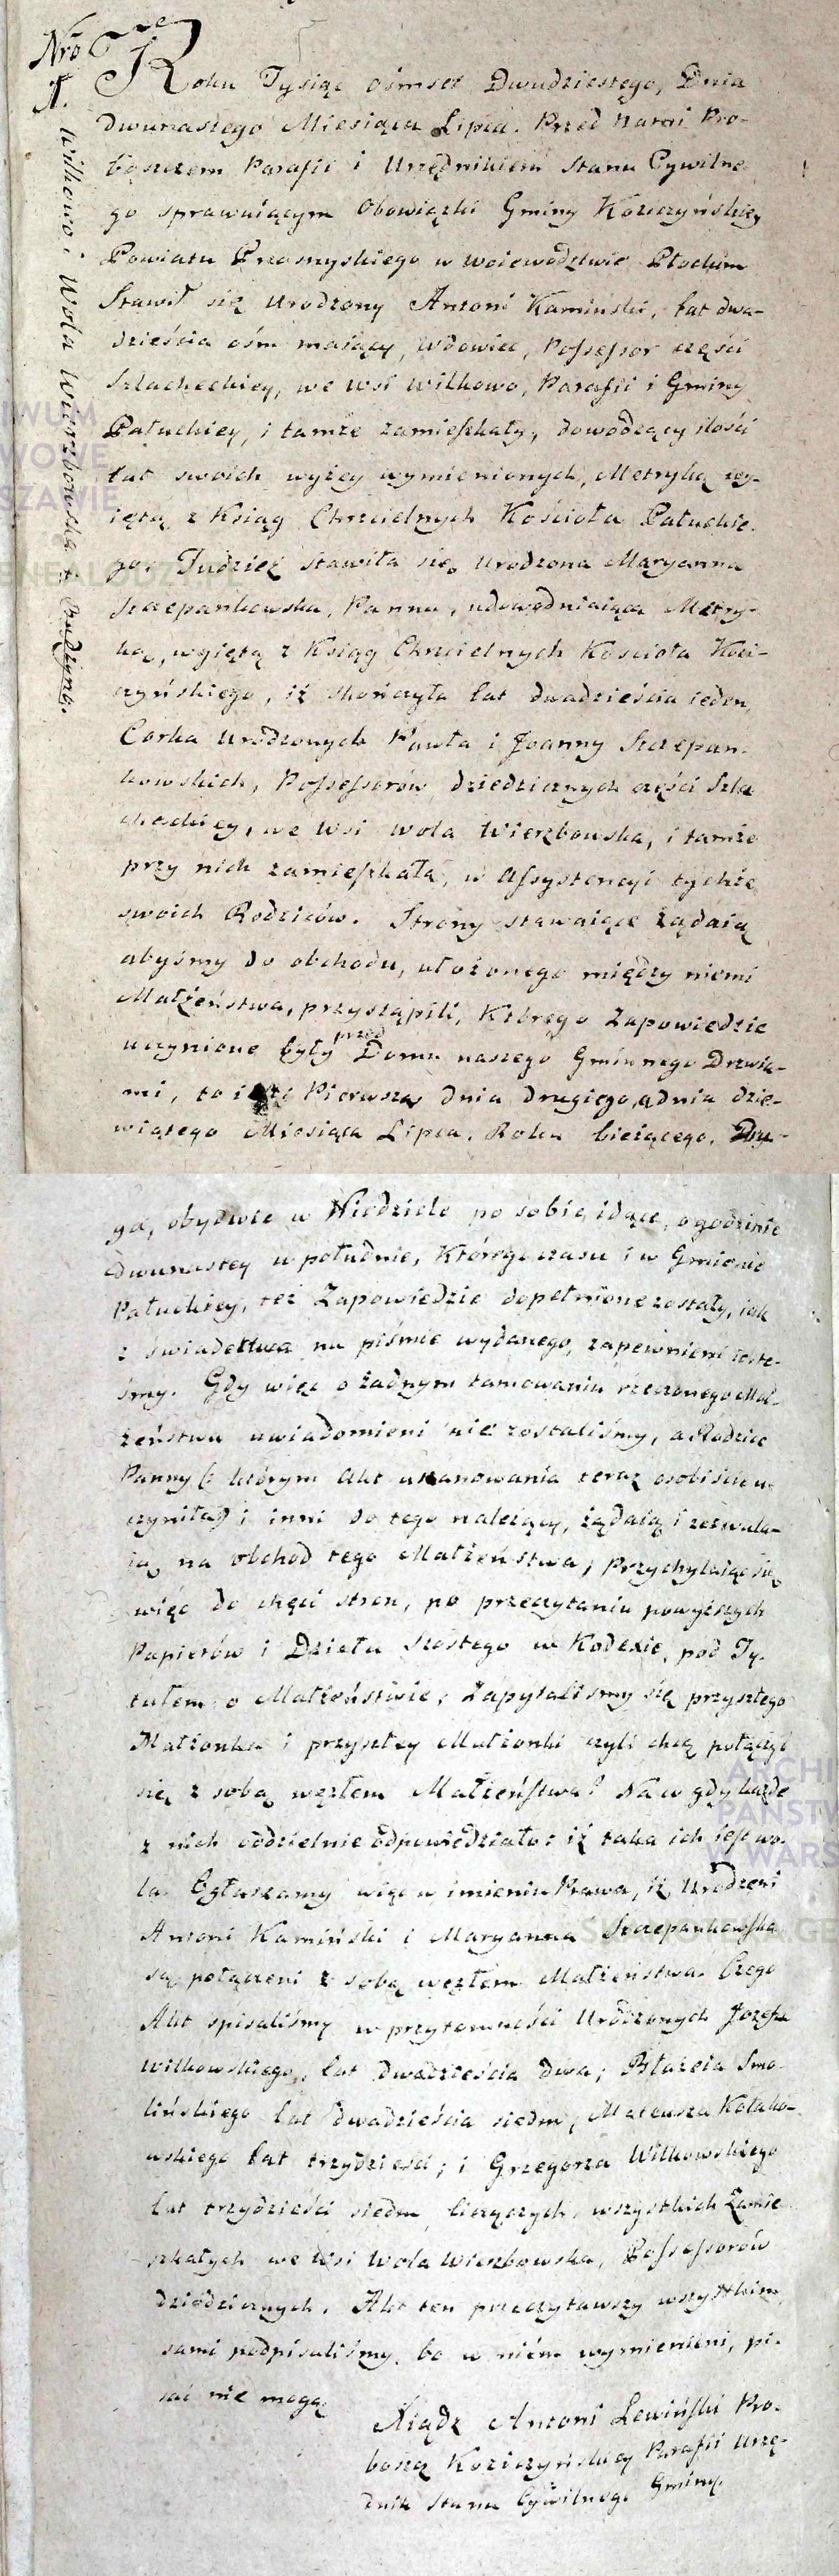 Nro
1.
Wilkowo i Wola Wierzbowska
Roku Tysiąc ośmset Dwudziestego, Dnia
dwunastego Miesiąca Lipca. Przed Nami Pro-
boszczem Parafii i Urzędnikiem Stanu Cywilne-
go sprawuiącym Obowiązki Gminy Koziczyńskiey
Powiatu Przasnyskiego w Woiewodztwie Płockim
Stawił się Urodzony Antoni Kamiński, lat dwa-
dzieścia ośm maiący, Wdowiec, Possessor części
Szlacheckiey, we wsi Wilkowo, Parafii i Gminy
Pałuckiey, i tamże zamieszkały, dowodzący ilości
lat swoich wyżey wymienionych, Metryką wy-
iętą z Ksiąg Chrzcielnych Kościoła Pałuckie-
go. Tudzież stawiła się Urodzona Maryanna
Szczepankowska, Panna, udowodniaiąca Metry-
ką, wyiętą z Ksiąg Chrzcielnych Kościoła Kozi-
czyńskiego, iż skończyła lat dwadzieścia ieden,
Corka Urodzonych Pawła i Joanny Szczepan-
kowskich, Possessorów dziedzicznych części Szla
checkiey, we Wsi Wola Wierzbowska, i tamże
przy nich zamieszkała, w Assystencyi tychże
swoich Rodziców. Strony stawaiące żądaią
abyśmy do obchodu, ułożonego między niemi
Małżeństwa, przystąpili, którego Zapowiedzie
uczynione były przed Domu naszego Gminnego Drzwia-
mi, to iest Pierwsza dnia drugiego, a dnia dzie-
wiątego Miesiąca Lipca, Roku bieżącego, Dru-
ga, obydwie w Niedziele po sobie idące, o godzinie
dwunastey w południe, którego czasu i w Gminie
Pałuckiey, też Zapowiedzie dopełnione zostały, iak
z świadectwa na piśmie wydanego, zapewnieni ieste-
śmy. Gdy więc o żadnym tamowaniu rzeczonego Mał-
żeństwa uwiadomieni nie zostaliśmy, a Rodzice
Panny (: którym Akt uszanowania teraz osobiście u-
czyniła:) i inni do tego należący, żądaią i zezwala-
ią na obchód tego Małżeństwa; Przychylaiąc się
więc do chęci stron, po przeczytaniu powyższych
Papierów i Działu Szóstego w Kodexie, pod Ty-
tułem o Małżeństwie; Zapytaliśmy się przyszłego
Małżonka i przyszłey Małżonki czyli chcą połączyć
się z sobą węzłem Małżeństwa? Na co gdy każde
z nich oddzielnie odpowiedziało: iż taka ich iest wo-
la. Ogłaszamy więc w imieniu Prawa, iż Urodzeni
Antoni Kamiński i Maryanna Szczepankowska
są połączeni z sobą węzłem Małżeństwa. Czego
Akt spisaliśmy w przytomności Urodzonych Jozefa
Wilkowskiego, lat dwadzieścia dwa; Błażeia Smo-
lińskiego lat dwadzieścia siedm; Mateusza Kołako-
wskiego lat trzydzieści; i Grzegorza Wilkowskiego
lat trzydzieści siedm liczących, wszystkich Zamie-
szkałych we Wsi Wola Wierzbowska, Possessorów
dziedzicznych. Akt ten przeczytawszy wszystkim,
sami podpisaliśmy, bo w niém wymienieni, pi-
sać nie mogą
Xiądz Antoni Lewiński Pro-
boszcz Koziczyńskiey Parafii Urzę-
dnik Stanu Cywilnego Gminy.